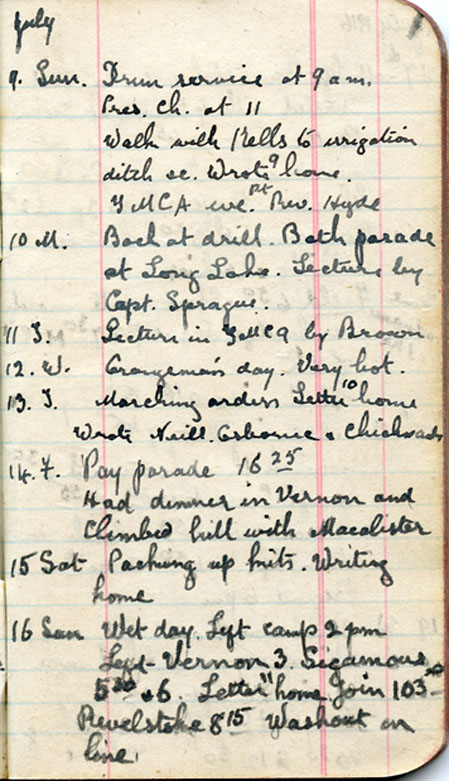 July
9. Sun. Drum service at 9 am.
Pres. Ch. at 11
Walk with Kells to irrigation
ditch &c. Wrote 9 home.
YMCA eve. Rt Rev. Hyde
10 M. Back at drill. Bath parade
at Long Lake. Lecture by
Capt. Sprague.
11 T. Lecture in YMCA by Brown
12. W. Orangeman's day. Very hot.
13. T. Marching orders Letter 10 home
Wrote Neill. Osborne &
14. F. Pay parade 16 25
Had dinner in Vernon and
Climbed hill with Macalister
15 Sat Packing up kits. Writing
home
16 Sun Wet day. Left camp 2 pm
Left Vernon 3. Sicamous
5 30 & 6. Letter 11 home. Join 103
Revelstoke 8 15 Washout on
line.